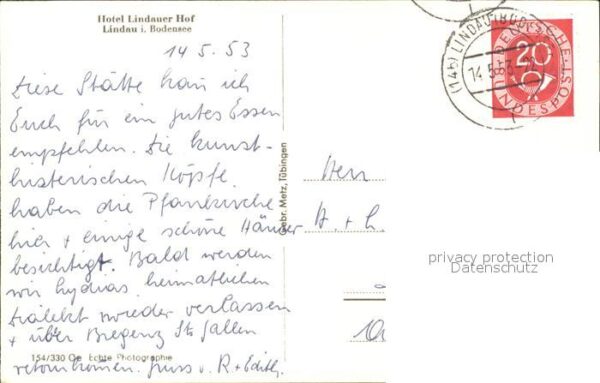 Hotel Lindauer Hof
Lindau i. Bodensee
14.5.53
Diese Stätte kan ich
Euch für ein gutes Essen
empfehlen. Die kunst-
historischen Köpfe
haben die Pfarrkirche
hier + einige schöne Häuser
besichtigt. Bald werden
wir heimatlichen
Dialekt wieder verlassen
+ über Bregenz St. Gallen
154/330 Echte Photographie
retourkommen. Gruss v. R + Edith.
Gebr. Metz, Tübingen
(14b) LINDAU (BODENSEE)
14.5.53
DEUTSCHE BUNDESPOST
20
Herr
A. + L.
privacy protection
Datenschutz